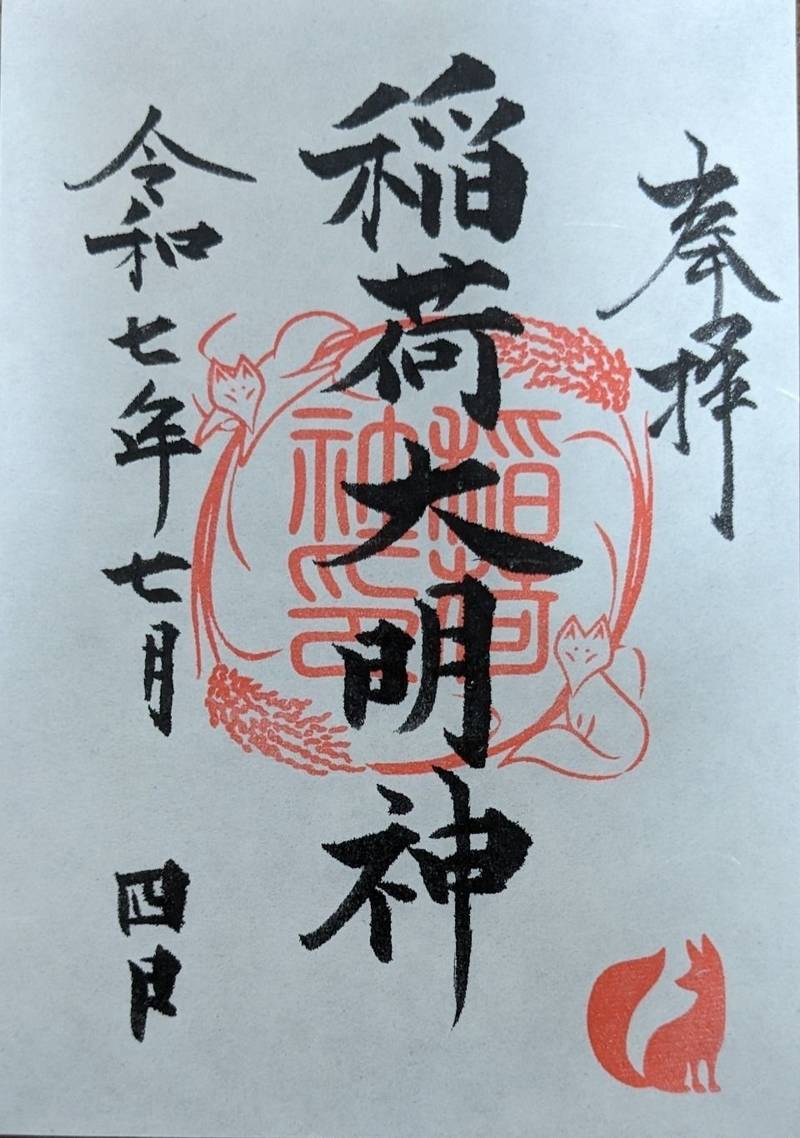 奉拝
稲荷大明神
稲荷
神印
令和七年七月四日